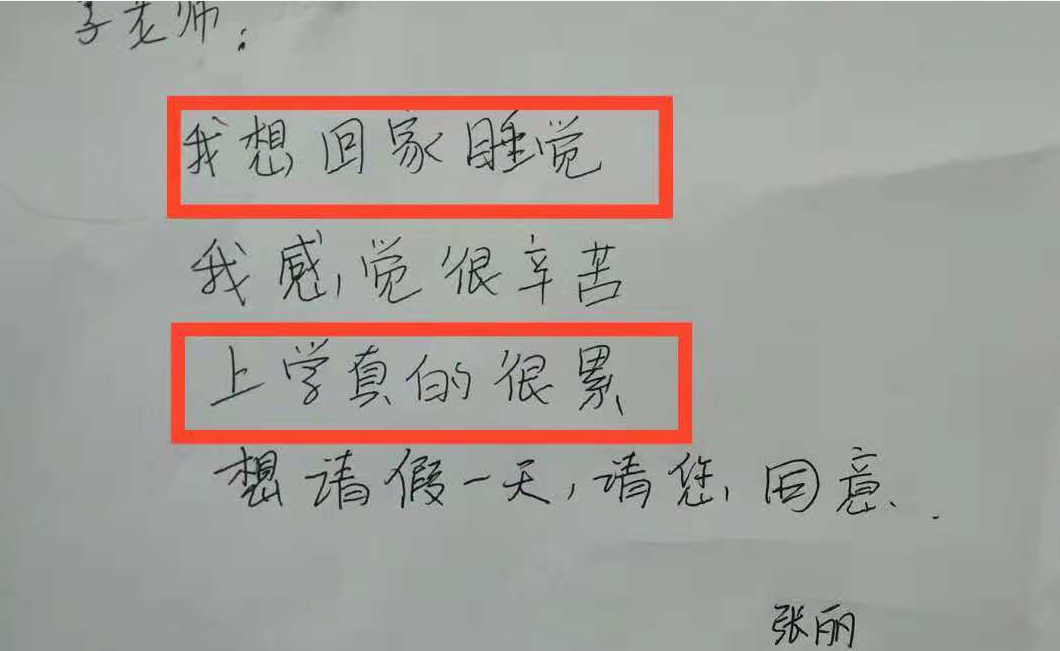 李老师:
我想回家睡觉
我感觉很辛苦
上学真的很累
想请假一天,请您同意.
张丽